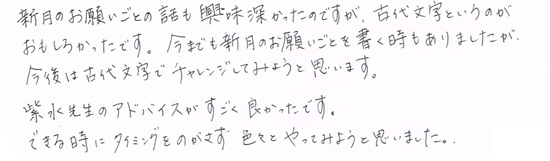 新月のお願いごとの話も興味深かったのですが、古代文字というのが
おもしろかったです。今までも新月のお願いごとを書く時もありましたが、
今後は古代文字でチャレンジしてみようと思います。
紫水先生のアドバイスがすごく良かったです。
できる時にタイミングをのがさず色々とやってみようと思いました。